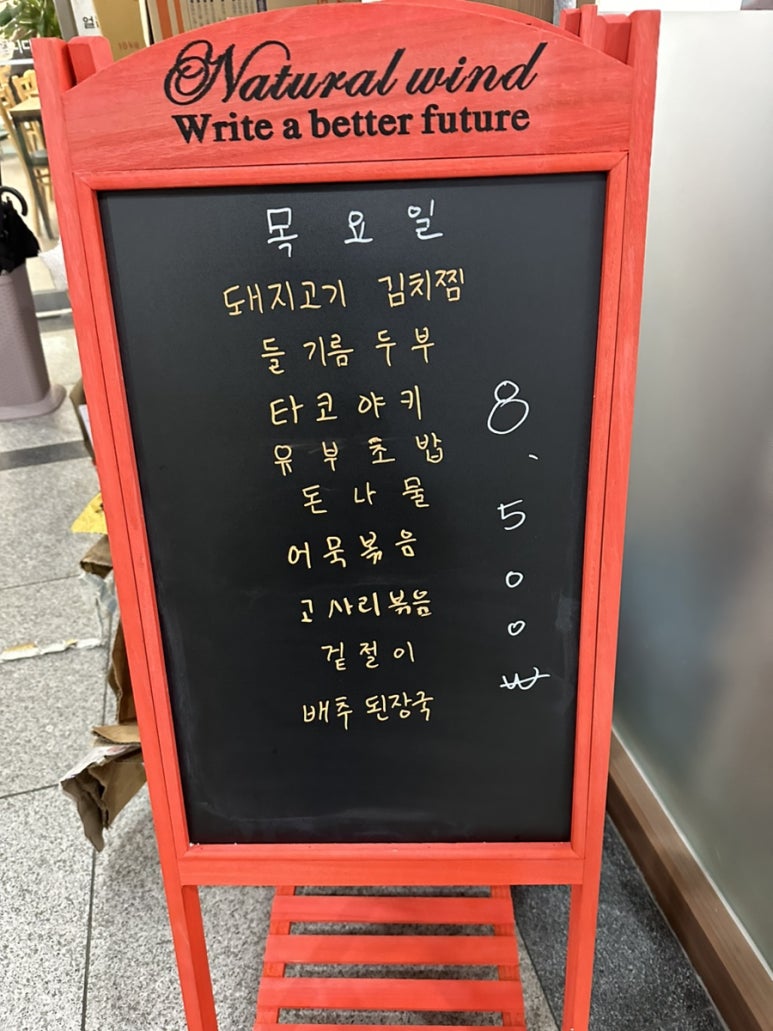 Natural wind
Write a better future
목요일
돼지고기 김치찜
들기름두부
타코야키
유부초밥
돈나물
어묵볶음
고사리볶음
겉절이
배추 된장국
8,500₩